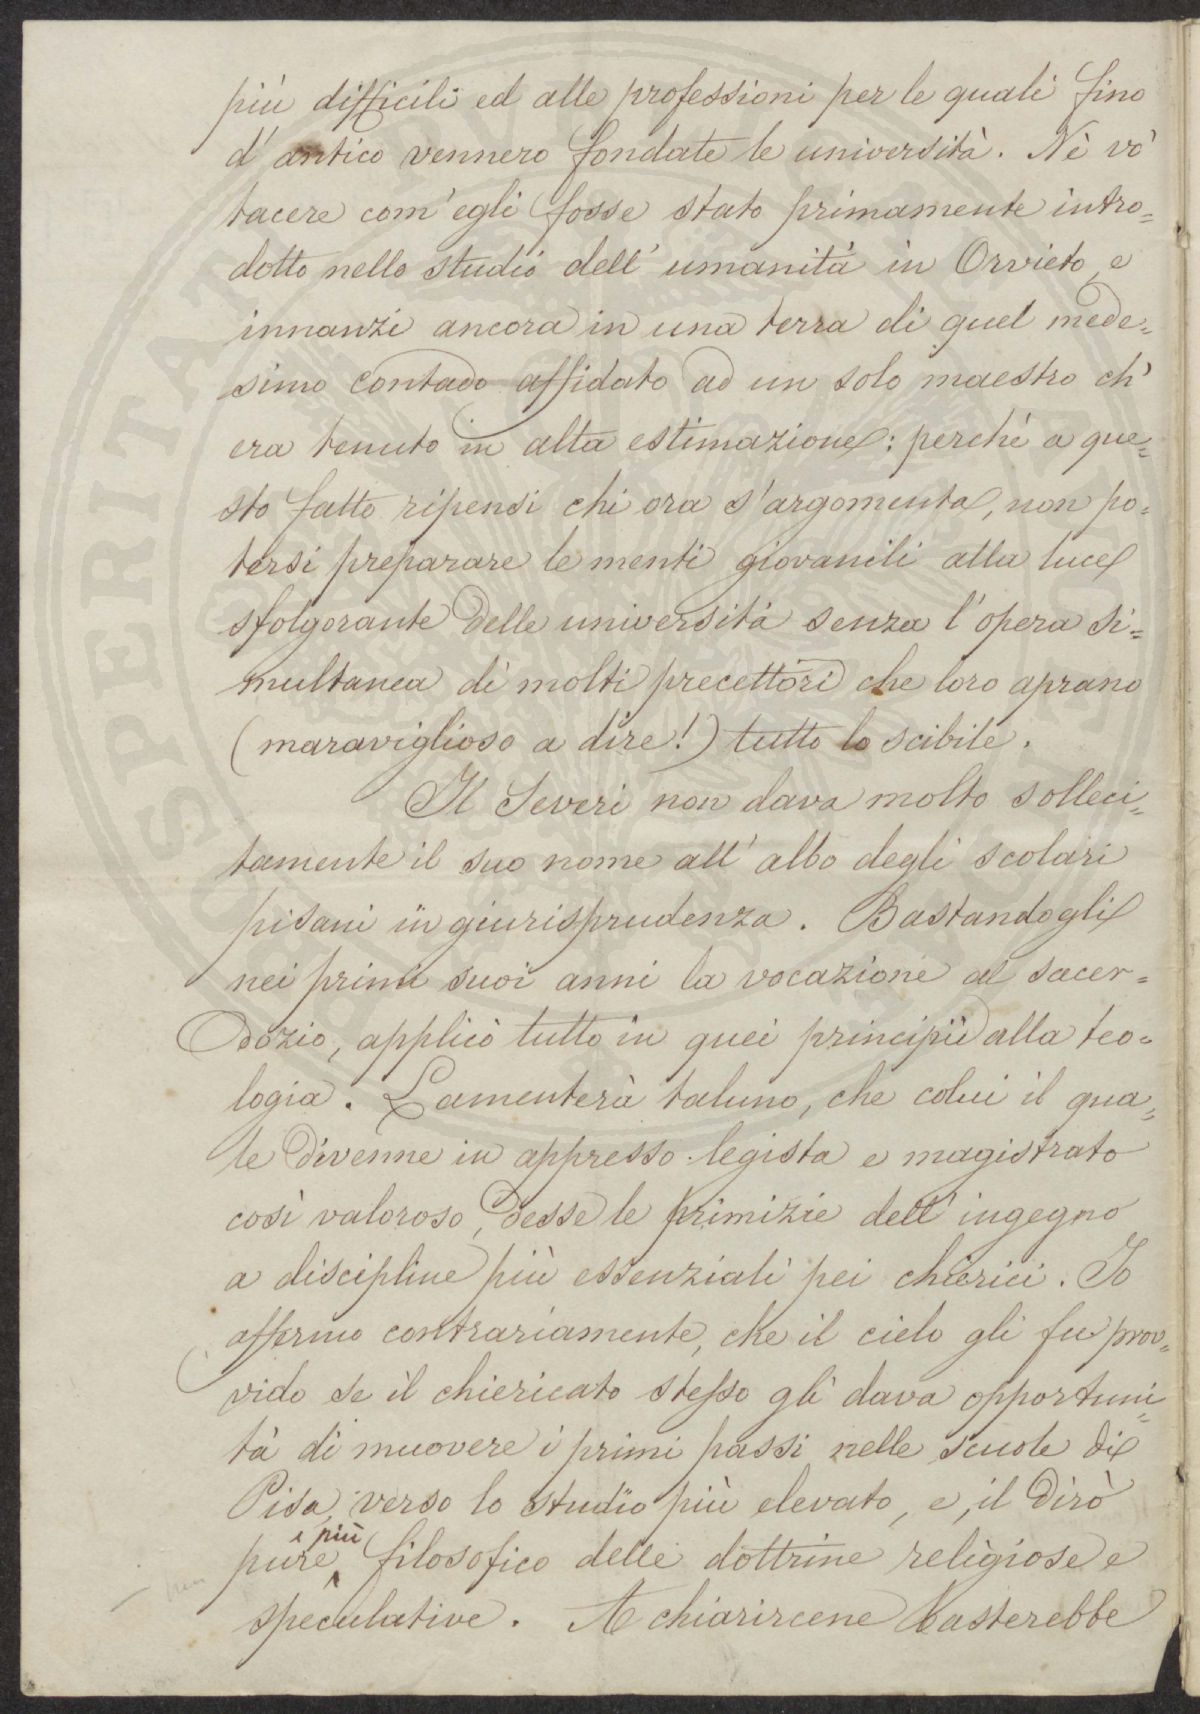 più difficili ed alle professioni per le quali fino
d'antico vennero fondate le università. Nè vò
tacere com'egli fosse stato primamente intro=
dotto nello studio dell'umanità in Orvieto, e
innanzi ancora in una terra di quel mede=
simo contado affidato ad un solo maestro ch'
era tenuto in alta estimazione: perchè a que=
sto fatto ripensi chi ora s'argomenta, non po=
tersi preparare le menti giovanili alla luce
sfolgorante delle università senza l'opera si=
multanea di molti precettori che loro aprano
(maraviglioso a dire!) tutto lo scibile.
Il Severi non dava molto solleci=
tamente il suo nome all'albo degli scolari
pisani in giurisprudenza. Bastandogli
nei primi suoi anni la vocazione al sacer=
dozio, applicò tutto in quei principii alla teo=
logia. Lamenterà taluno, che colui il qua=
le divenne in appresso legista e magistrato
così valoroso, desse le primizie dell'ingegno
a discipline più essenziali pei chierici. Io
affermo contrariamente, che il cielo gli fu prov=
vido se il chiericato stesso gli dava opportuni=
tà di muovere i primi passi nelle scuole di
Pisa, verso lo studio più elevato, e, il dirò
pure, e più filosofico delle dottrine religiose e
speculative. A chiarircene basterebbe